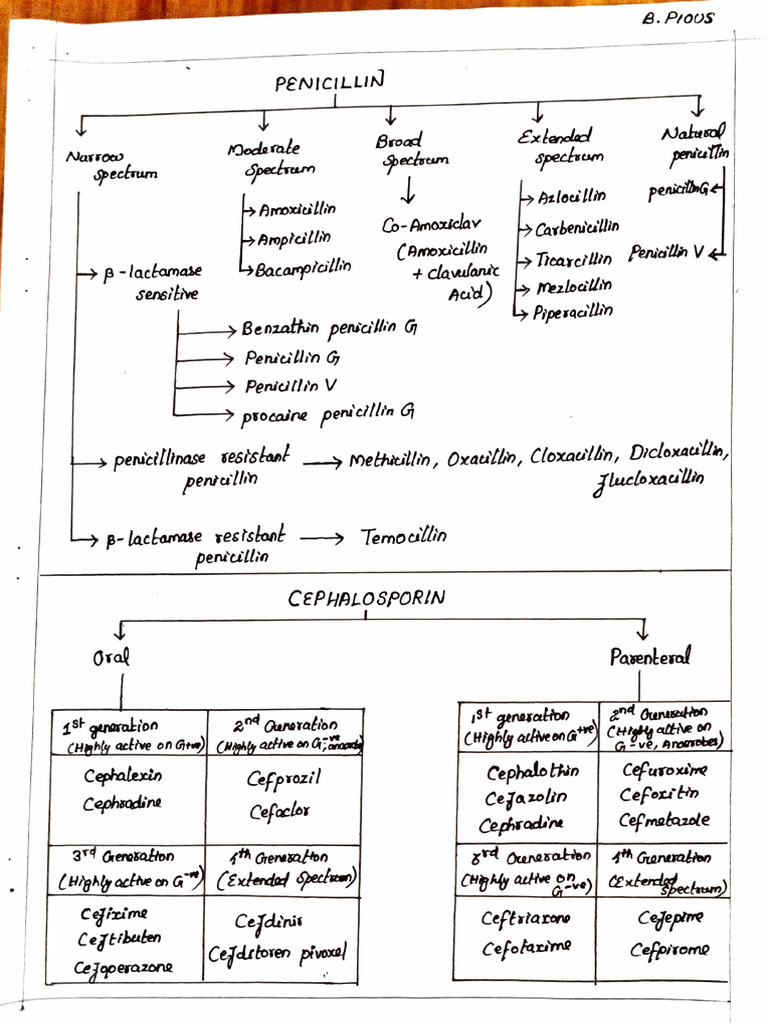 B. PIOUS
PENICILLIN
Narrow
spectrum
Moderate
spectrum
Broad
spectrum
Extended
spectrum
Natural
penicillin
Amoxicillin
Ampicillin
Bacampicillin
Co-Amoxiclav
(Amoxicillin
+ clavulanic
Acid)
Azlocillin
Carbenicillin
Ticarcillin
Mezlocillin
Piperacillin
penicillin G
Penicillin V
β-lactamase
sensitive
Benzathin penicillin G
Penicillin G
Penicillin V
procaine penicillin G
penicillinase resistant
penicillin
Methicillin, Oxacillin, Cloxacillin, Dicloxacillin,
flucloxacillin
β-lactamase resistant
penicillin
Temocillin
CEPHALOSPORIN
Oral
Parenteral
1st generation
(Highly active on G+ve)
2nd Generation
(Highly active on G-ve,
Cephalexin
Cephradine
Cefprozil
Cefaclor
3rd Generation
(Highly active on G-ve)
4th Generation
(Extended Spectrum)
Cefixime
Ceftibuten
Cefoperazone
Cefdinir
Cefditoren pivoxel
1st generation
(Highly active on G+ve)
2nd Generation
(Highly active on
G-ve, Anaerobes)
Cephalothin
Cefazolin
Cephradine
Cefuroxime
Cefoxitin
Cefmetazole
3rd Generation
(Highly active on
G-ve)
4th Generation
(Extended
spectrum)
Ceftriaxone
Cefotaxime
Cefepime
Cefpirome